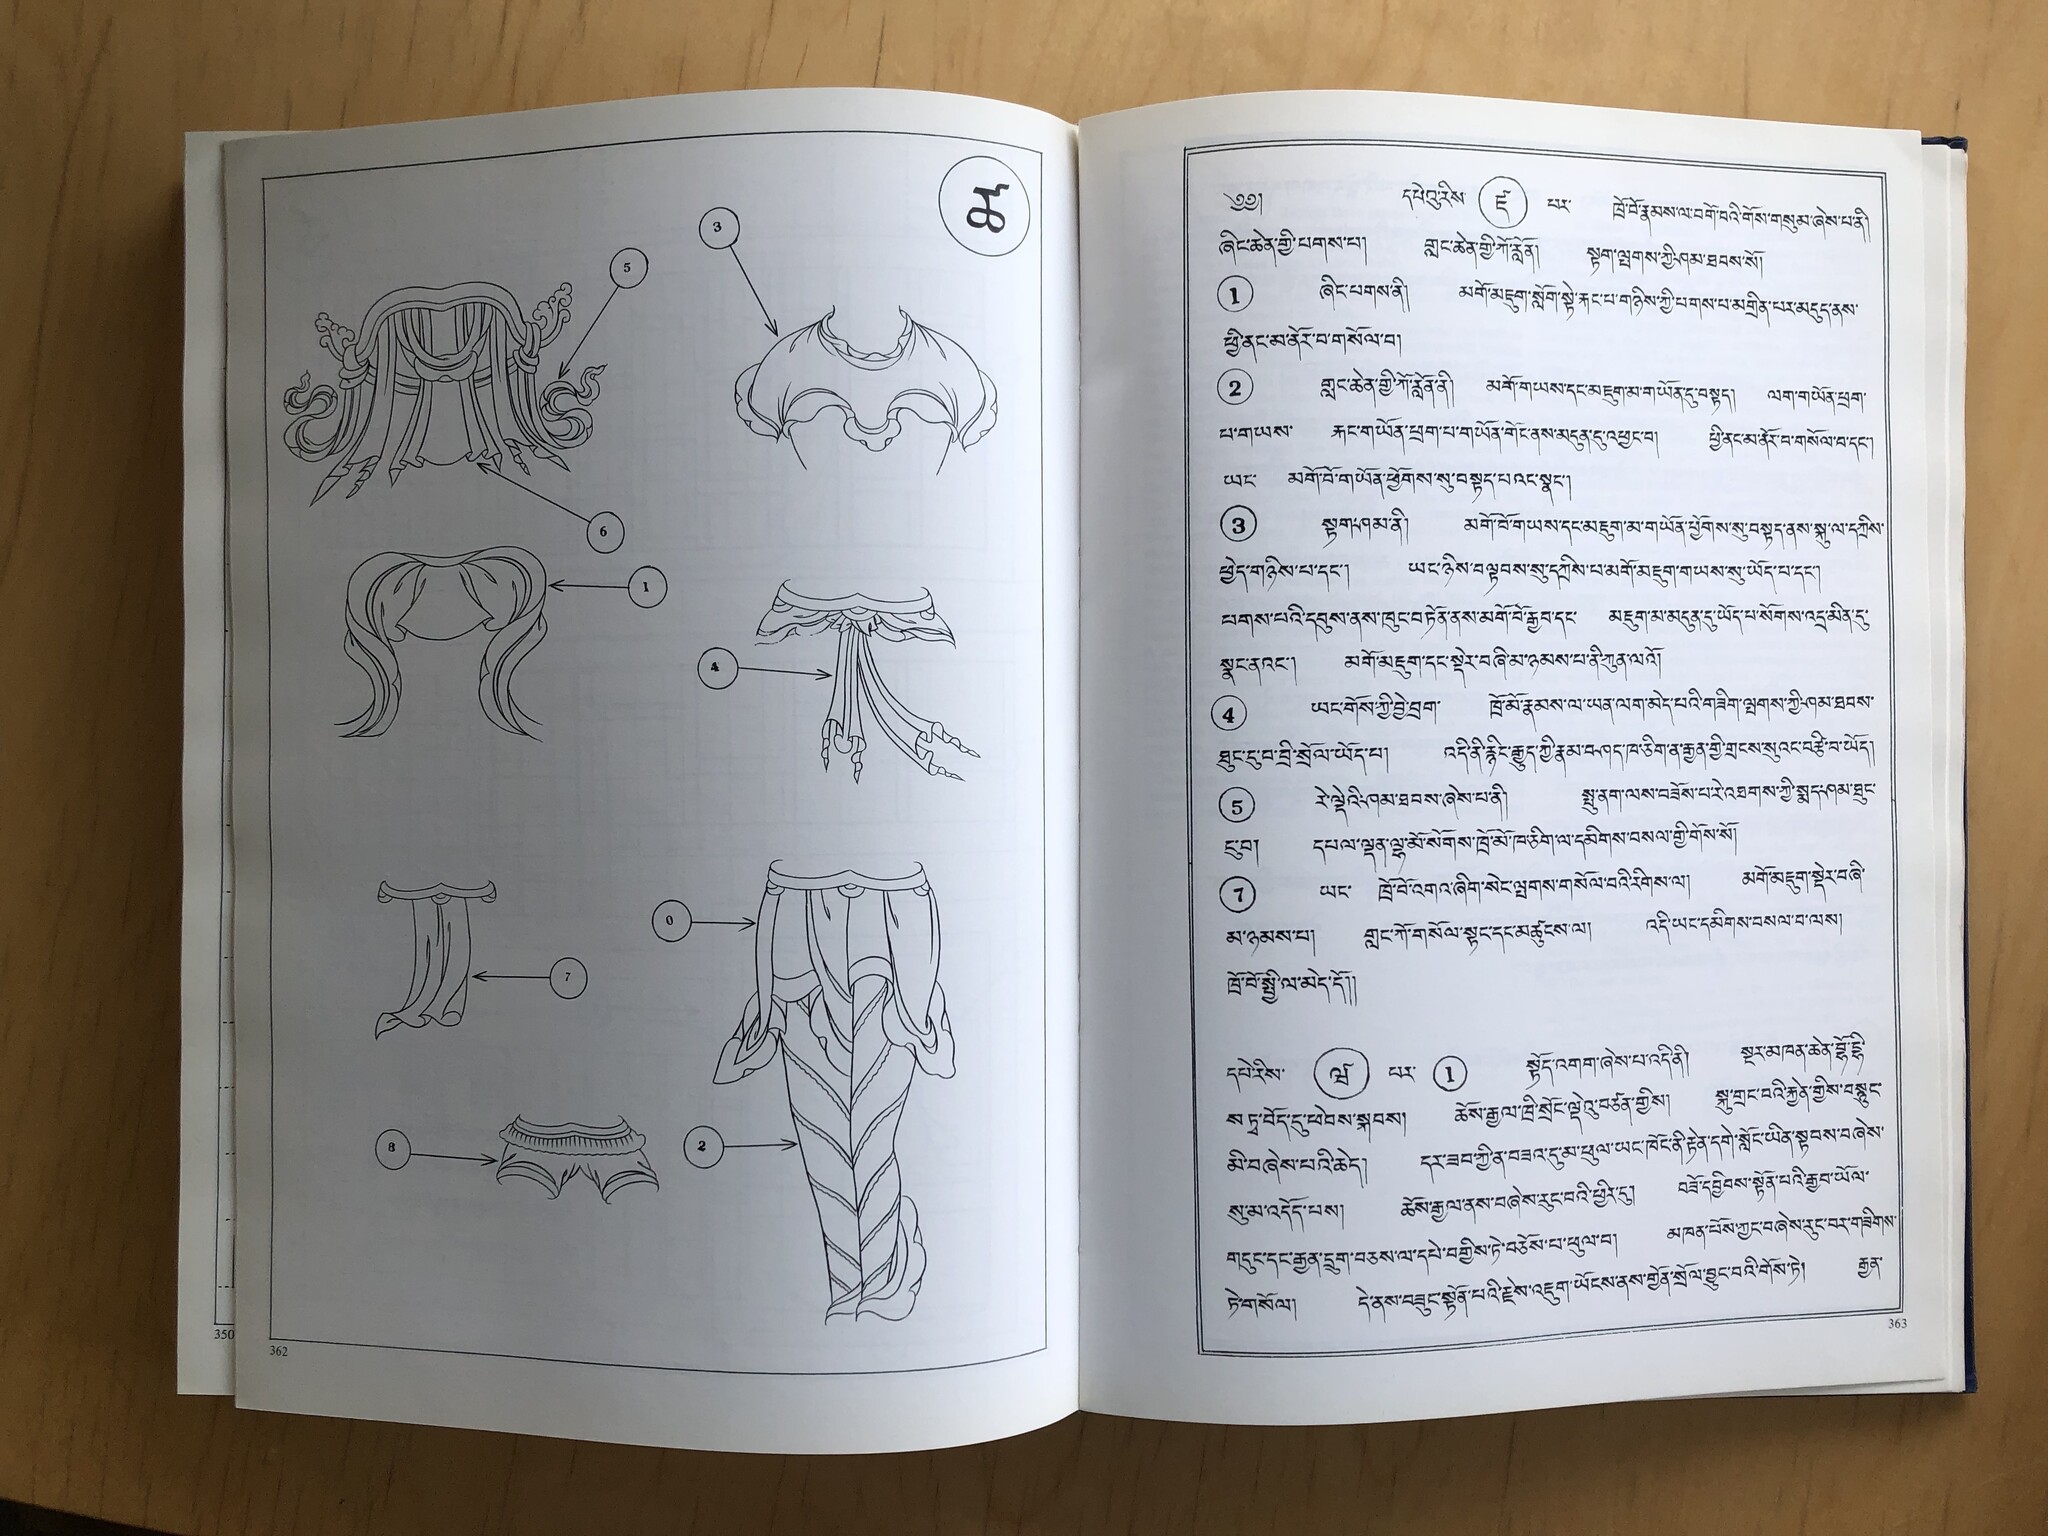 ཚ
3
5
6
1
4
0
7
8
2
350
362
༡༡།  དཔེའུ་རིས  ཛ  པར་  ཁྲོ་བོ་རྣམས་ལ་བགོ་བའི་གོས་གསུམ་ཞེས་པ་ནི།
ཞིང་ཆེན་གྱི་པགས་པ།  གླང་ཆེན་གྱི་ཀོ་རློན།  སྟག་ལྤགས་ཀྱི་ཤམ་ཐབས་སོ།
1  ཞིང་པགས་ནི།  མགོ་མཇུག་སློག་སྟེ་རྐང་པ་གཉིས་ཀྱི་པགས་པ་མགྲིན་པར་མདུད་ནས་
ཕྱི་ནང་མ་ནོར་བ་གསོལ་བ།
2  གླང་ཆེན་གྱི་ཀོ་རློན་ནི།  མགོ་གཡས་དང་མཇུག་མ་གཡོན་དུ་བསྟད།  ལག་གཡོན་ཕྲག་
པ་གཡས་  རྐང་གཡོན་ཕྲག་པ་གཡོན་གོང་ནས་མདུན་དུ་འཕྱང་བ།  ཕྱི་ནང་མ་ནོར་བ་གསོལ་བ་དང་།
ཡང་  མགོ་བོ་གཡོན་ཕྱོགས་སུ་བསྟད་པ་འང་སྣང་།
3  སྟག་ཤམ་ནི།  མགོ་བོ་གཡས་དང་མཇུག་མ་གཡོན་ཕྱོགས་སུ་བསྟད་ནས་སྐུ་ལ་དཀྲིས་
ཕྱེད་གཉིས་པ་དང་།  ཡང་ཉིས་བལྟབས་སུ་དཀྲིས་པ་མགོ་མཇུག་གཡས་སུ་ཡོད་པ་དང་།
པགས་པའི་དབུས་ནས་ཁུང་བཏོན་ནས་མགོ་བོ་རྒྱབ་དང་  མཇུག་མ་མདུན་དུ་ཡོད་པ་སོགས་འདྲ་མིན་དུ་
སྣང་ན་འང་།  མགོ་མཇུག་དང་སྡེར་བཞི་མ་ཉམས་པ་ནི་ཀུན་ལའོ།
4  ཡང་གོས་ཀྱི་བྱེ་བྲག་  ཁྲོ་མོ་རྣམས་ལ་ཡན་ལག་མེད་པའི་གཟིག་ལྤགས་ཀྱི་ཤམ་ཐབས་
ཐུང་དུ་བ་བྲི་སྲོལ་ཡོད་པ།  འདི་ནི་རྙིང་རྒྱུད་ཀྱི་རྣམ་བཤད་ཁ་ཅིག་ན་རྒྱན་གྱི་གྲངས་སུ་འང་བརྩི་བ་ཡོད།
5  རེ་ལྡེའི་ཤམ་ཐབས་ཞེས་པ་ནི།  སྤུ་ནག་ལས་བཟོས་པ་རེ་འཐགས་ཀྱི་སྨད་ཤམ་ཐུང་
ངུ་བ།  དཔལ་ལྡན་ལྷ་མོ་སོགས་ཁྲོ་མོ་ཁ་ཅིག་ལ་དམིགས་བསལ་གྱི་གོས་སོ།
7  ཡང་  ཁྲོ་བོ་འགའ་ཞིག་སེང་ལྤགས་གསོལ་བའི་རིགས་ལ།  མགོ་མཇུག་སྡེར་བཞི་
མ་ཉམས་པ།  གླང་ཀོ་གསོལ་སྟང་དང་མཚུངས་ལ།  འདི་ཡང་དམིགས་བསལ་བ་ལས།
ཁྲོ་བོ་སྤྱི་ལ་མེད་དོ།།
དཔེ་རིས་  པར་  1  སྟོད་འགག་ཞེས་པ་འདི་ནི།  སྔར་མཁན་ཆེན་བྷོ་དྷི་
ས་ཏྭ་བོད་དུ་ཕེབས་སྐབས།  ཆོས་རྒྱལ་ཁྲི་སྲོང་ལྡེའུ་བཙན་གྱིས།  སྐུ་གྲང་བའི་རྐྱེན་གྱིས་བསྙུང་
མི་བཞེས་པའི་ཆེད།  དར་ཟབ་ཀྱི་ན་བཟའ་དུ་མ་ཕུལ་ཡང་ཁོང་ནི་རྟེན་དགེ་སློང་ཡིན་སྟབས་བཞེས་
སུ་མ་འདོད་པས།  ཆོས་རྒྱལ་ནས་བཞེས་རུང་བའི་ཕྱིར་དུ།  བཟོ་དབྱིབས་སྟོན་པའི་རྒྱབ་ཡོལ་
གདུང་དང་རྒྱན་དྲུག་བཅས་ལ་དཔེ་བགྱིས་ཏེ་བཅོས་པ་ཕུལ་བ།  མཁན་པོས་ཀྱང་བཞེས་རུང་བར་གཟིགས་
ཏེ་གསོལ།  དེ་ནས་བཟུང་སྟོན་པའི་རྗེས་འཇུག་ཡོངས་ནས་གྱོན་སྲོལ་བྱུང་བའི་གོས་ཏེ།  རྒྱན་
363